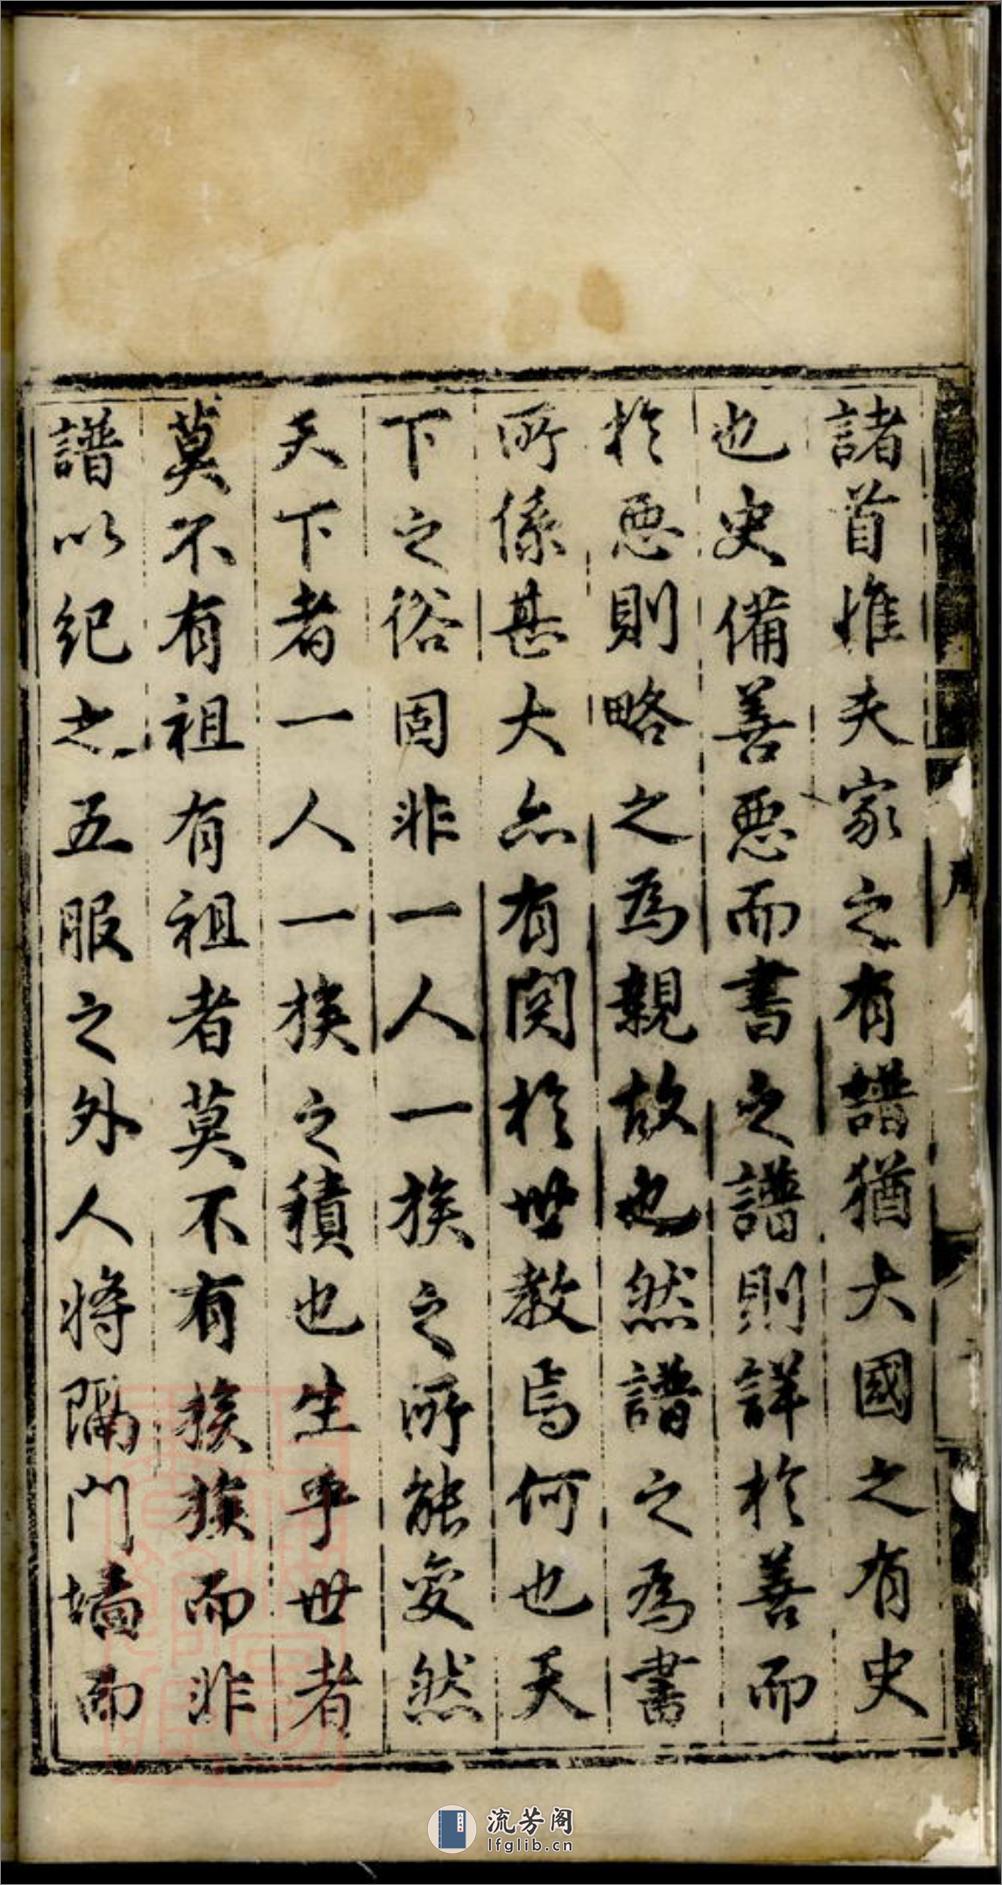 諸首惟夫家之有譜猶大國之有史
也史備善惡而書之譜則詳於善而
於惡則略之為親故也然譜之為書
所係甚大亦有関於世教焉何也天
下之俗固非一人一族之所能变然
天下者一人一族之積也生乎世者
莫不有祖有祖者莫不有族族而非
譜以紀之五服之外人將隔門墻而
流芳阁
lfglib.cn